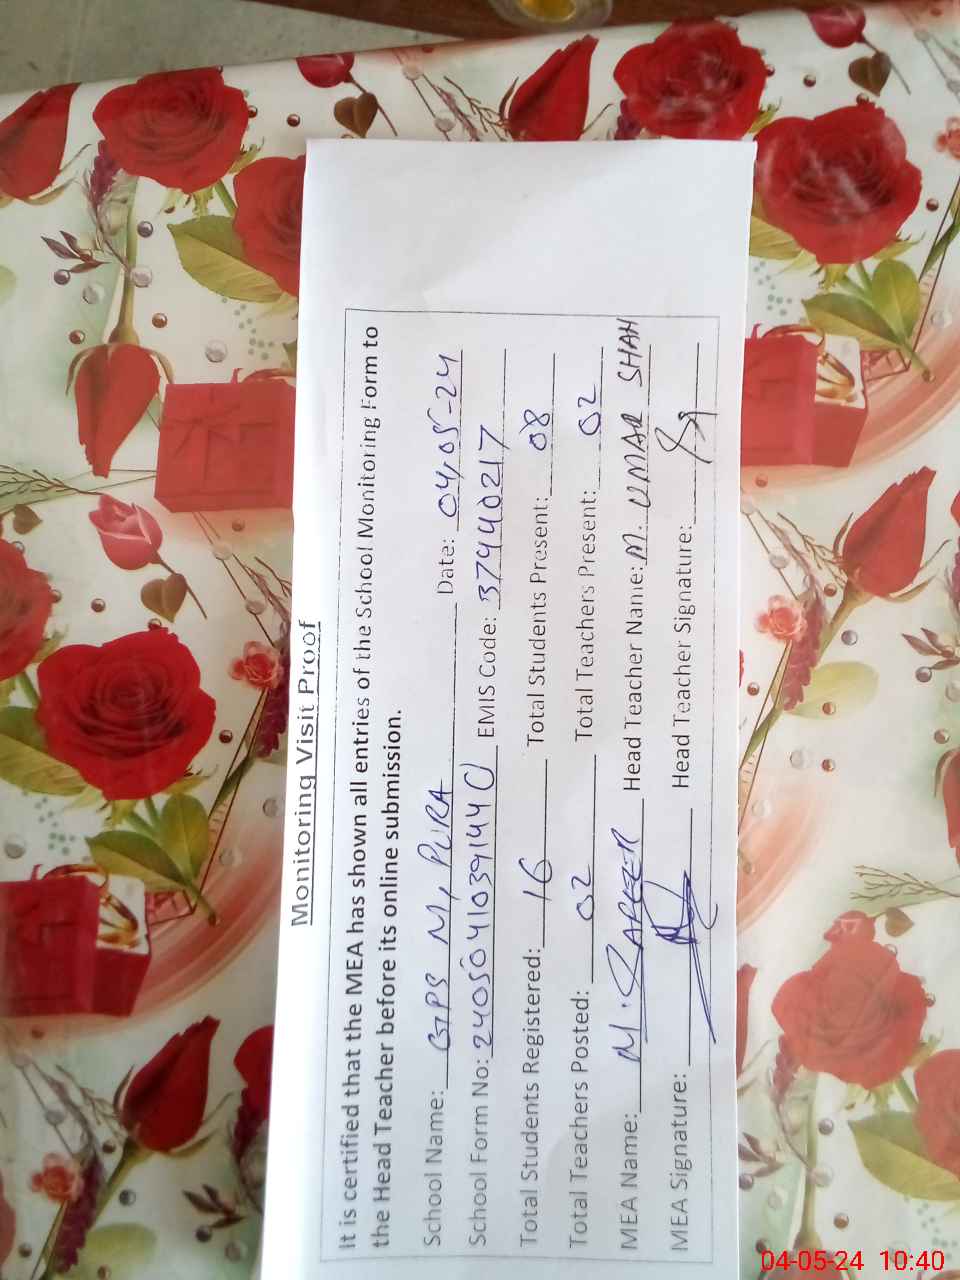 Monitoring Visit Proof
It is certified that the MEA has shown all entries of the School Monitoring Form to
the Head Teacher before its online submission.
School Name: GPS M, PURA Date: 04,05-24
School Form No: EMIS Code: 37440217
Total Students Registered: 16 Total Students Present: 08
Total Teachers Posted: 02 Total Teachers Present: 02
MEA Name: M. Head Teacher Name: M. UMAR SHAH
MEA Signature: Head Teacher Signature:
04-05-24 10:40